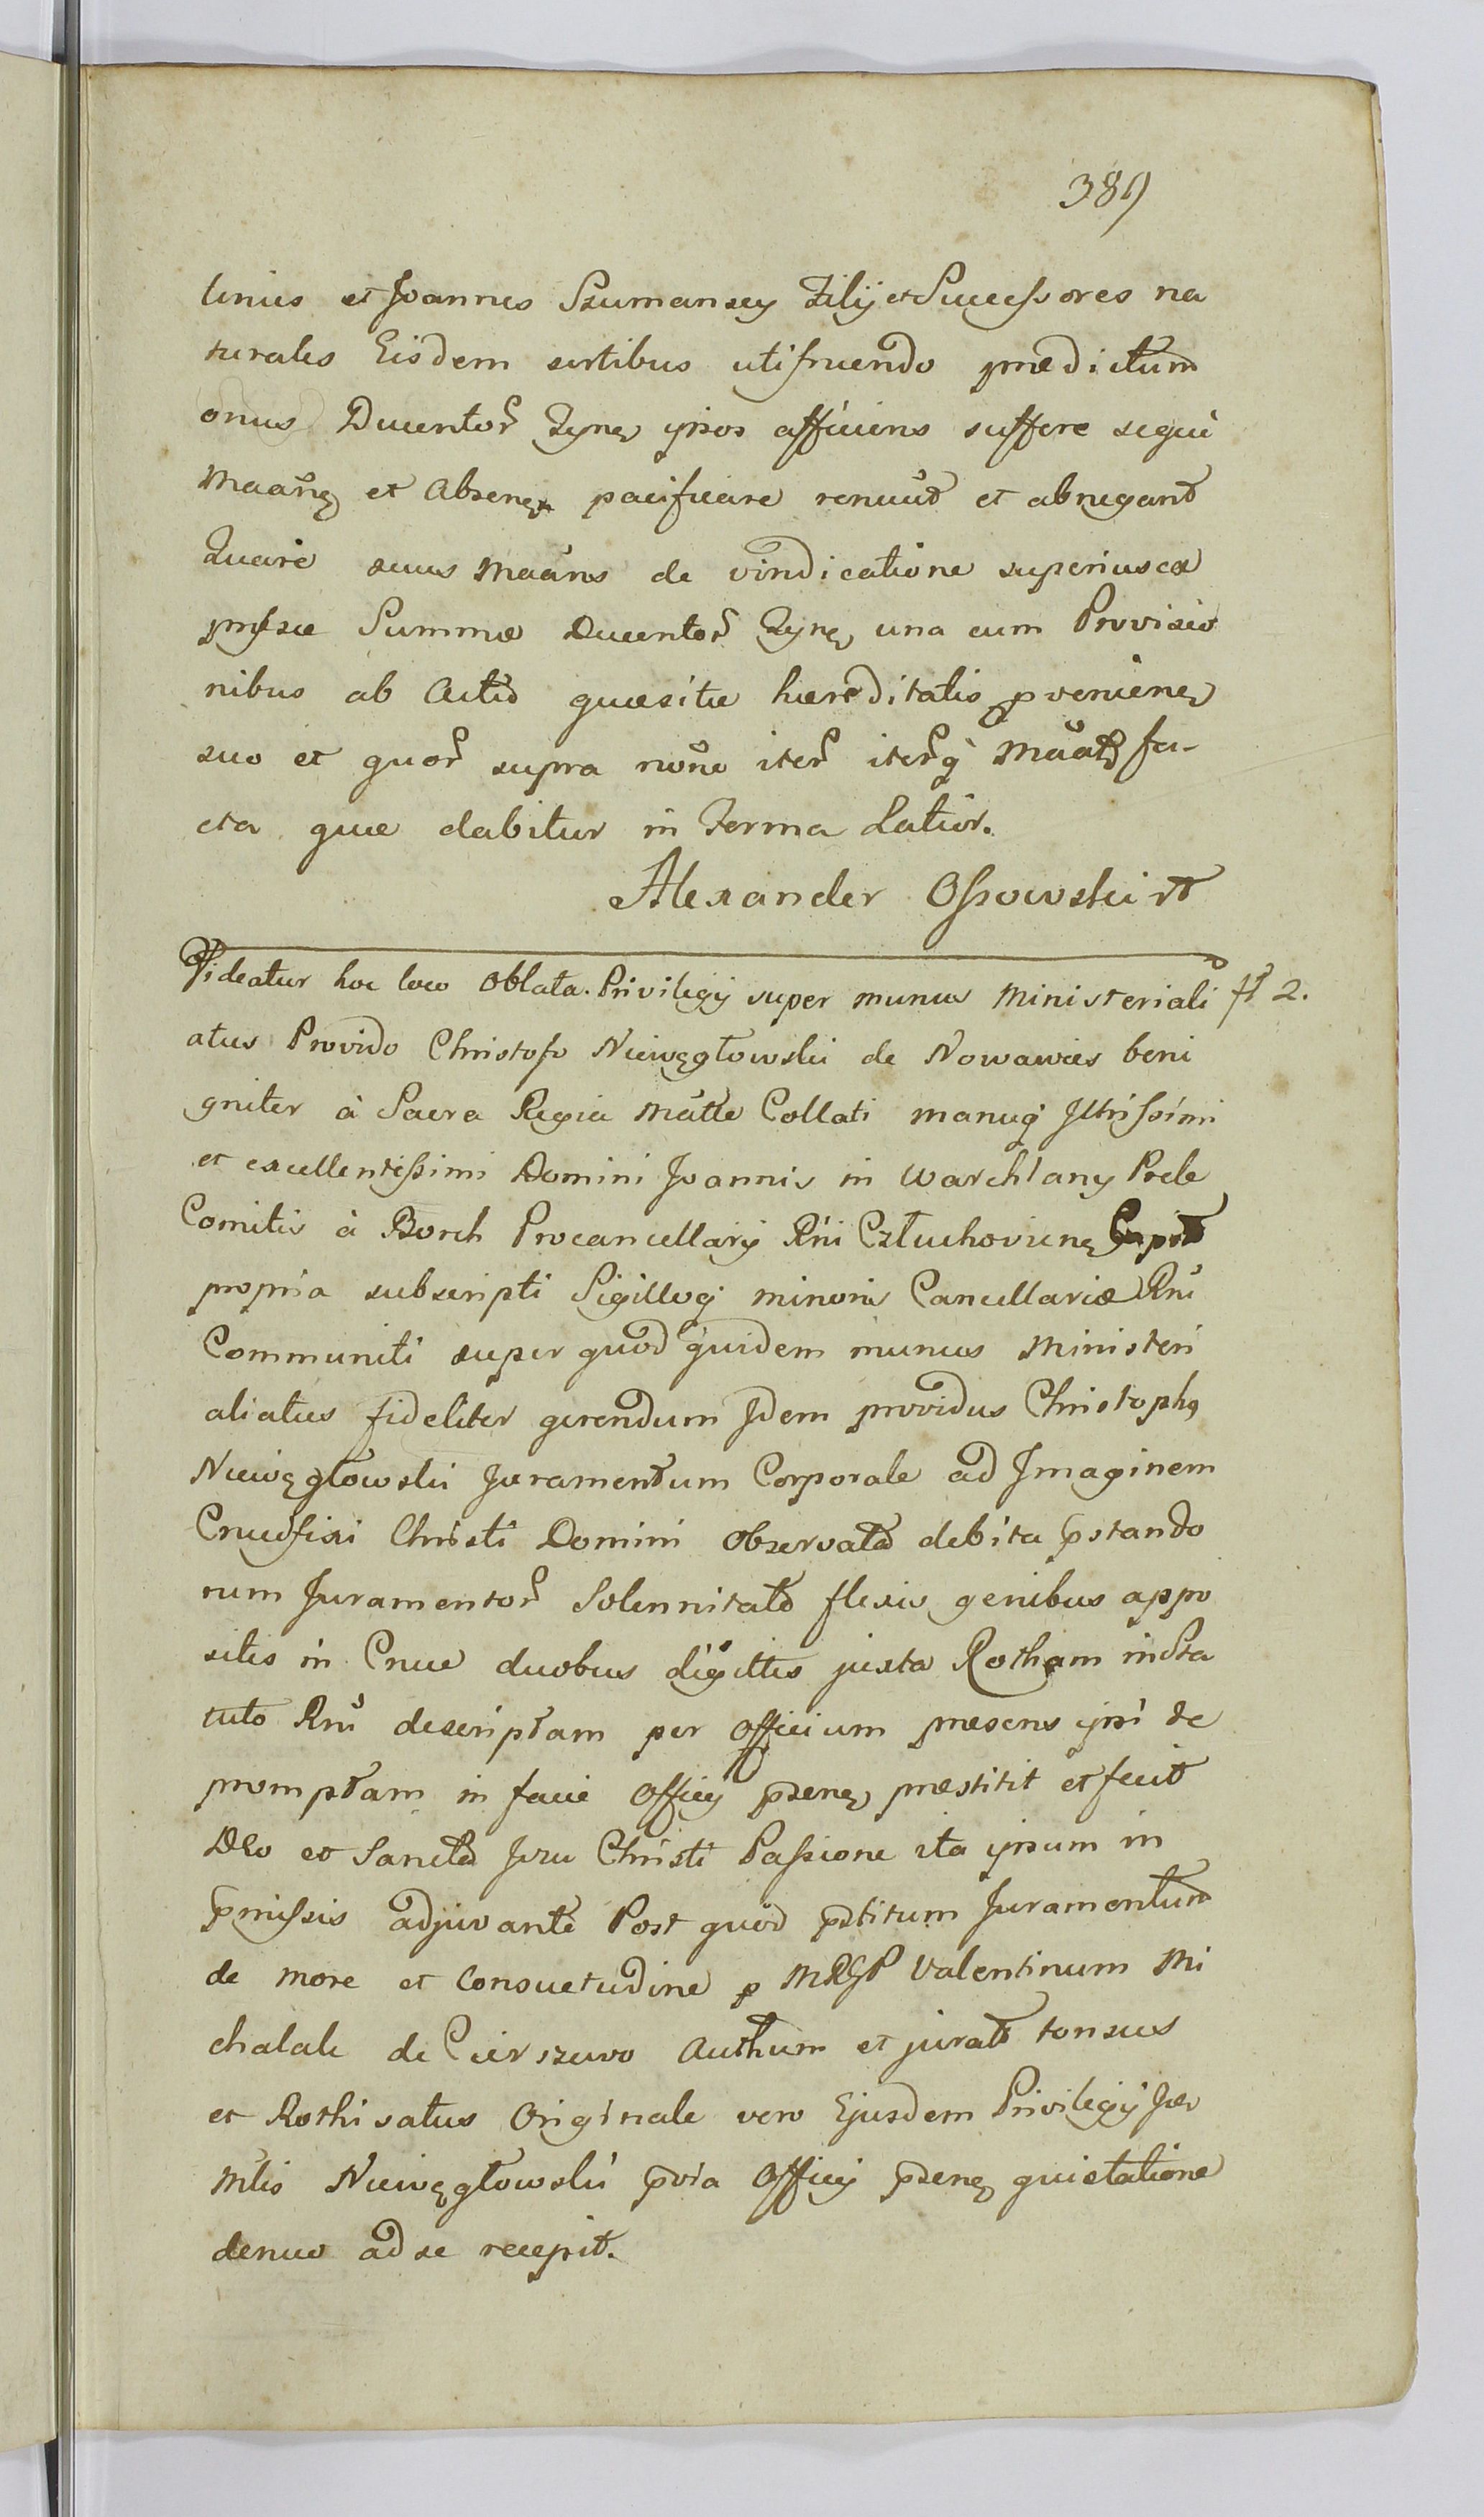 389
linus et Joannes Szumanscy Filij et Successores na
turales Eisdem sortibus utifruendo prædictum
onus Ducentor Fynr ipsos afficiens suffere seque
Maanq et Absenq pacificare renuut et abnegant
Quare suus Maans de vindicatione superius ex
pressæ Summæ Ducentor Fynr una cum Provisio
nibus ab Actis quæsitæ hæreditatis pvenienq
suo et quor supra noe iter iterq Maatr fa-
cta quæ dabitur in Forma Latior.
Alexander Ossowski rt
Videatur hoc loco Oblata Privilegij super munus Ministeriali ft 2.
atus Provido Christofo Niewęgłowski de Nowawies beni
gniter à Sacra Regia Matte Collati manuq Illrissimi
et excellentissimi Domini Joannis in Warchlany Prele
Comitis à Borch Procancellarij Rni Człuchovienq Capit
propria subscripti Sigilloq minoris Cancellariæ Rni
Communiti super quod quidem munus Ministeri
aliatus fideliter gerendum Idem providus Christophq
Niewęgłowski Juramentum Corporale ad Imaginem
Crucifixi Christi Domini observata debita pstando
rum Juramentor Solennitate flexis genibus appo
sitis in Cruce duobus digittis juxta Rotham in Sta
tuto Rni descriptam per Officium præsens ipsi de
promptam in facie Officij psenq præstitit et fecit
Deo et Sancta Jesu Christi Passione ita ipsum in
pmissis adjuvante Post quod pstitum Juramentum
de more et Consvetudine p MRGP Valentinum Mi
chalak de Cierszewo Authum et jurat tonsus
et Rothisatus Originale vero Ejusdem Privilegij
Mlis Niewęgłowski pvia Officij psenq quietatione
denuo ad se recepit.